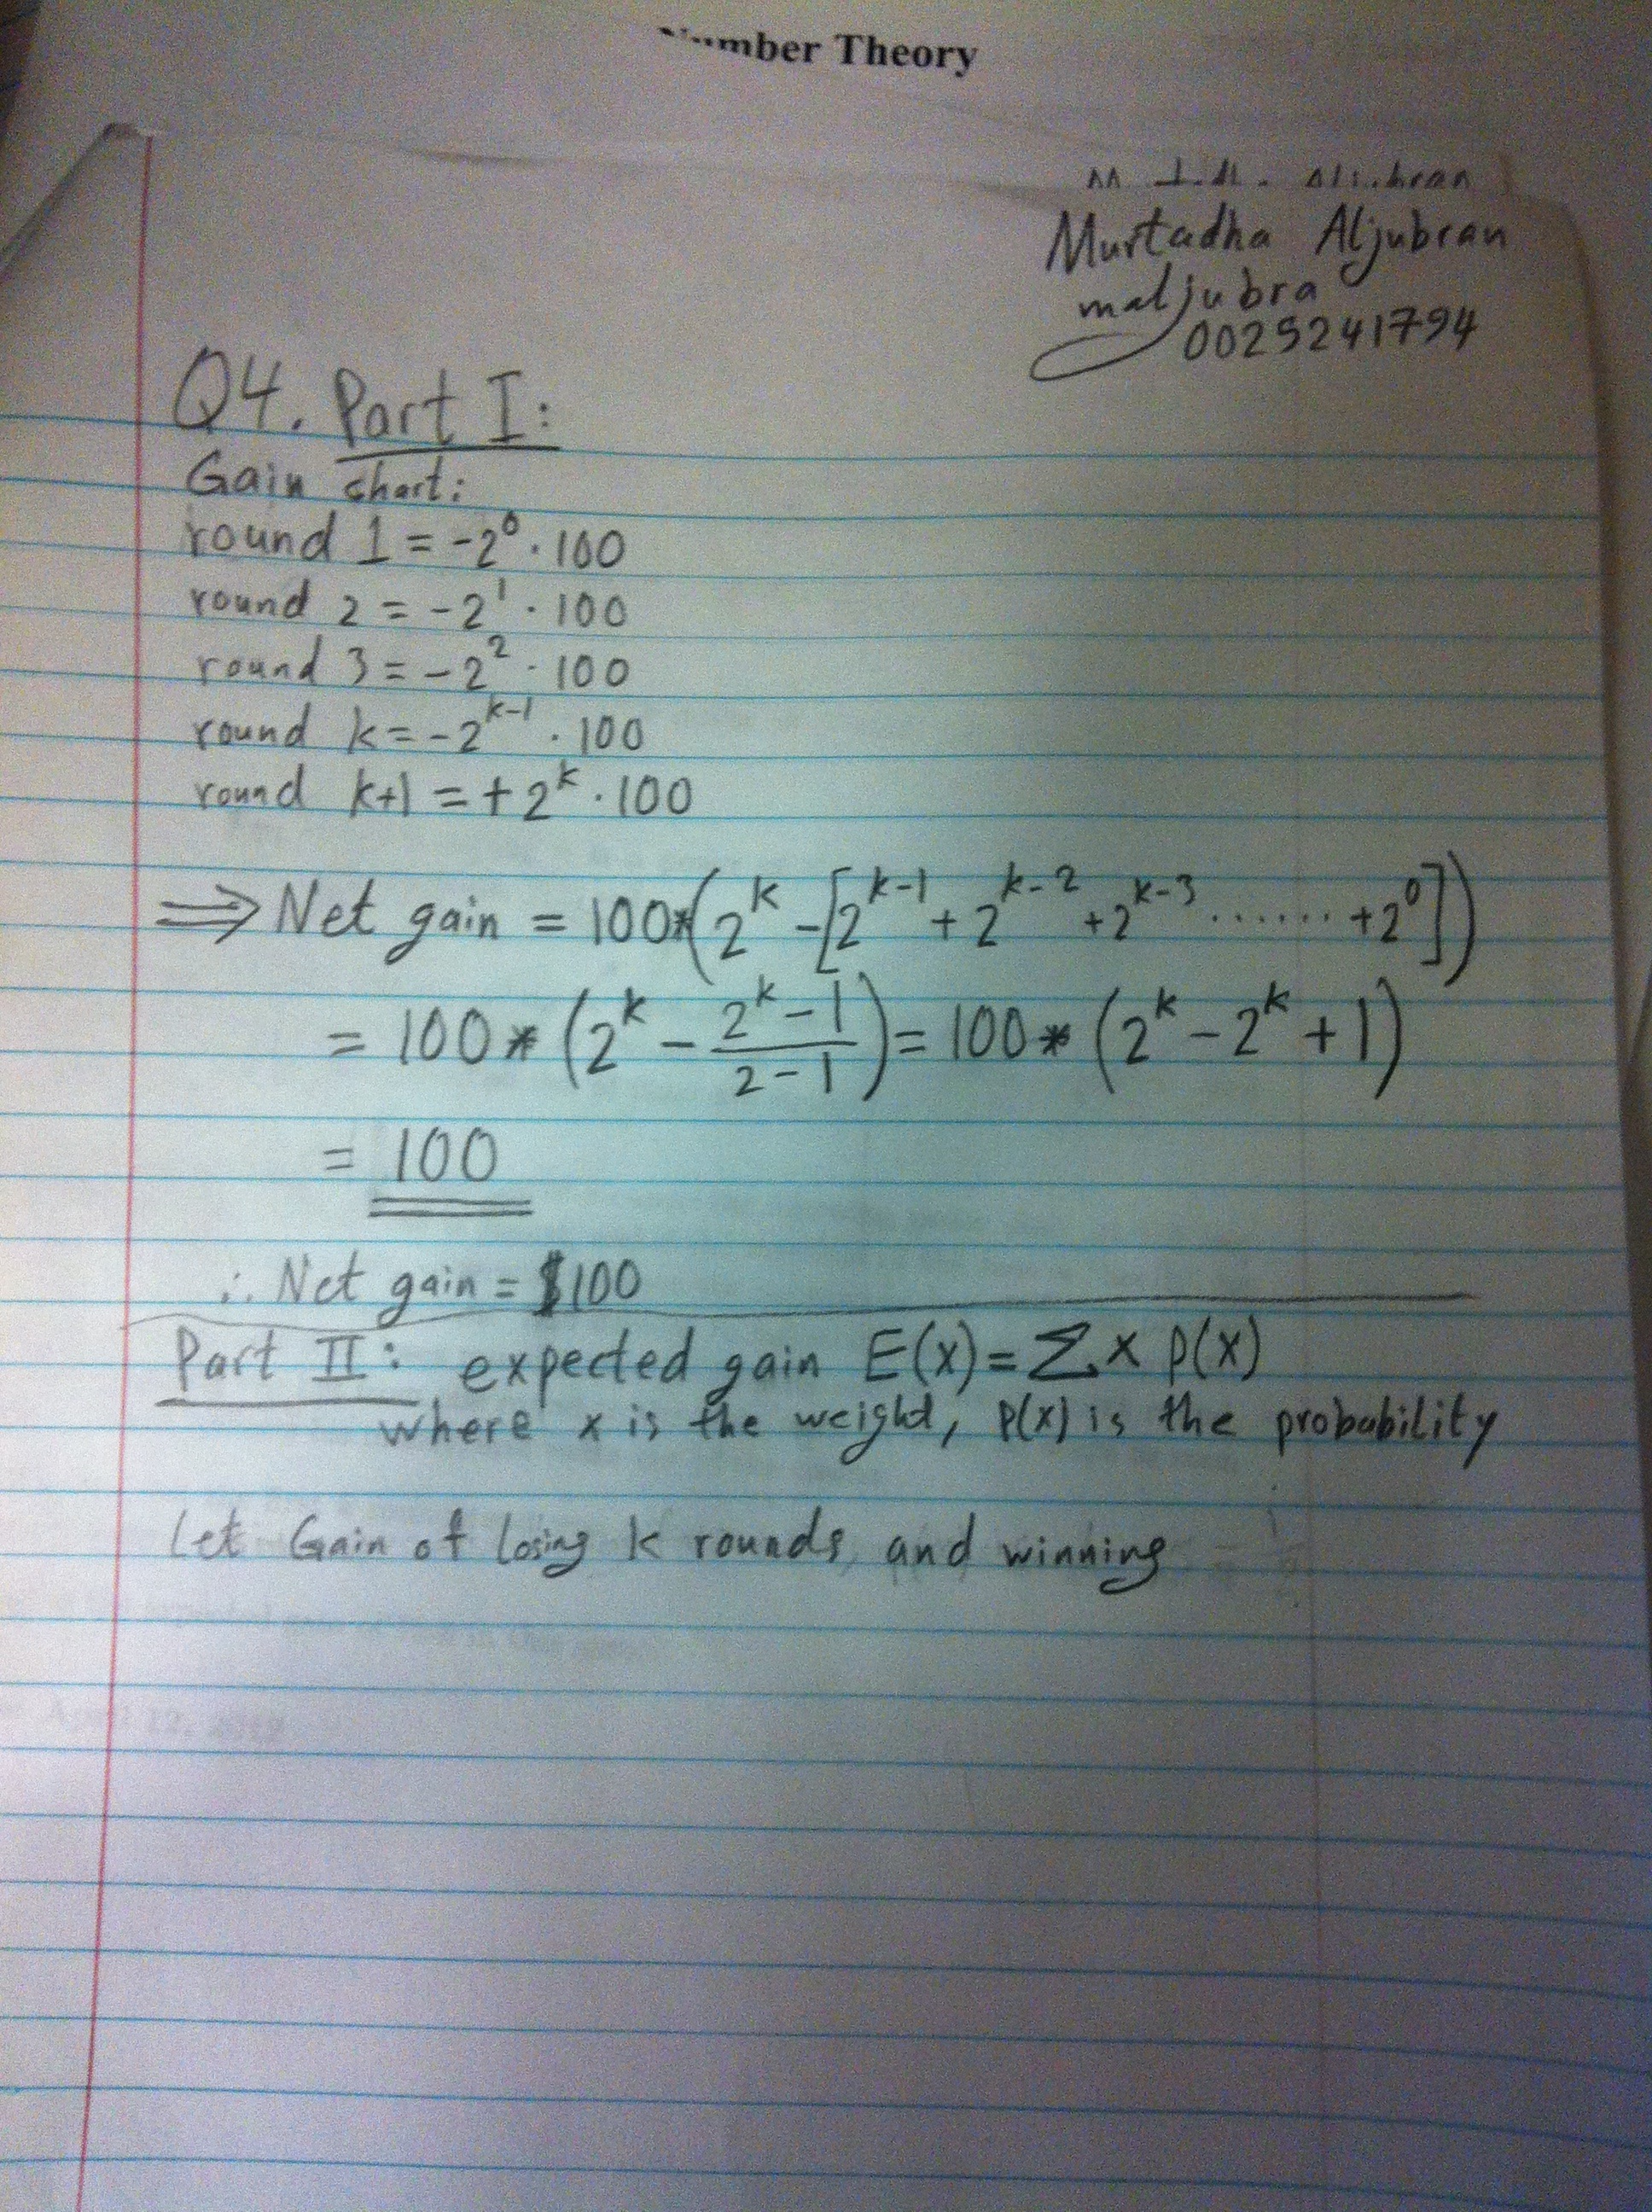 Theory
Murtadha Aljubran
maljubra
0025241794
Q4. Part I:
Gain chart:
round 1 = -2^0 · 100
round 2 = -2^1 · 100
round 3 = -2^2 · 100
round k = -2^{k-1} · 100
round k+1 = +2^k · 100
⇒ Net gain = 100*(2^k - [2^{k-1} + 2^{k-2} + 2^{k-3} ...... + 2^0])
= 100 * (2^k - \frac{2^k - 1}{2 - 1}) = 100 * (2^k - 2^k + 1)
= 100
∴ Net gain = $100
Part II: expected gain E(x) = Σ x p(x)
where x is the weight, p(x) is the probability
Let Gain of losing k rounds and winning
April 12,